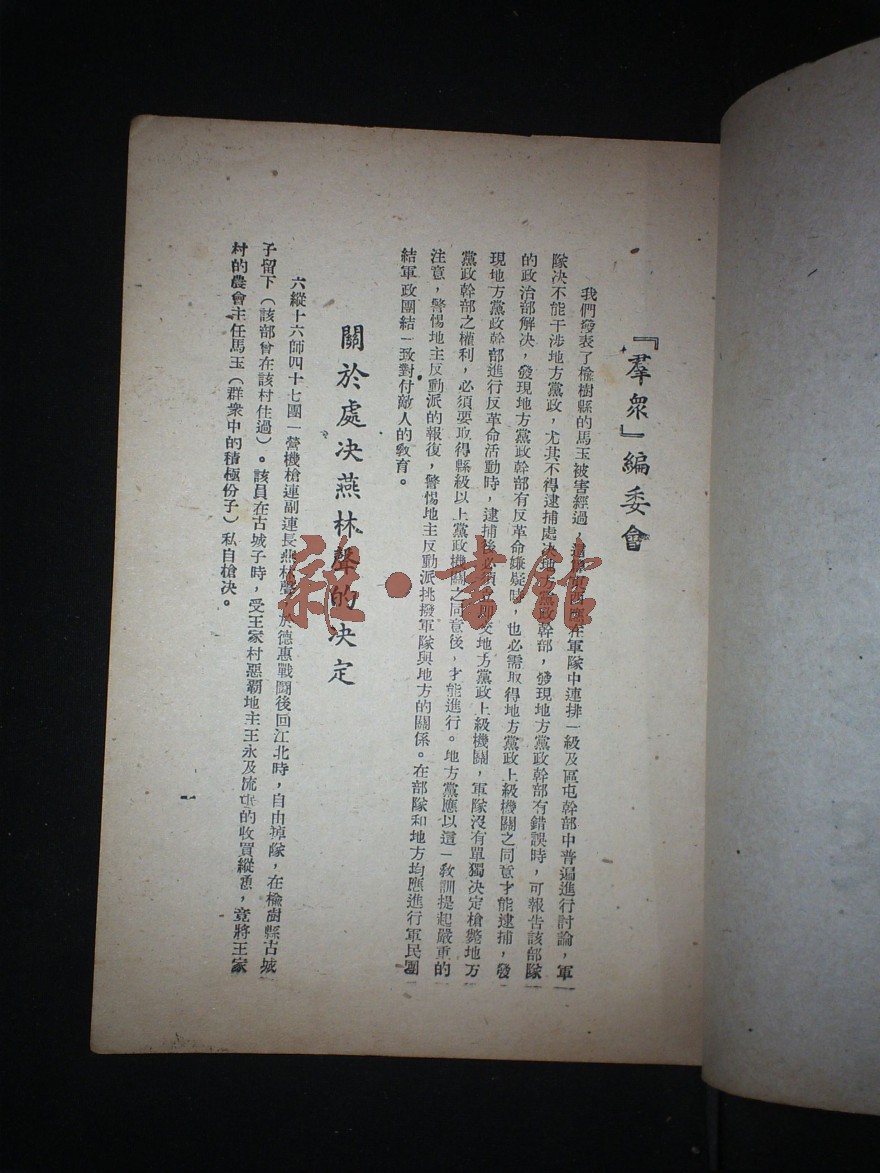 『羣眾』編委會
我們發表了榆樹縣的馬玉被害經過,這 在軍隊中連排一級及區屯幹部中普遍進行討論,軍
隊決不能干涉地方黨政,尤其不得逮捕處決地方黨政幹部,發現地方黨政幹部有錯誤時,可報告該部隊
的政治部解決,發現地方黨政幹部有反革命嫌疑時,也必需取得地方黨政上級機關之同意才能逮捕,發
現地方黨政幹部進行反革命活動時,逮捕後必須立即交地方黨政上級機關,軍隊沒有單獨決定槍斃地方
黨政幹部之權利,必須要取得縣級以上黨政機關之同意後,才能進行。地方黨應以這一教訓提起嚴重的
注意,警惕地主反動派的報復,警惕地主反動派挑撥軍隊與地方的關係。在部隊和地方均應進行軍民團
結軍政團結一致對付敵人的教育。
關於處决燕林聲的决定
六縱十六師四十七團一營機槍連副連長燕林聲,於德惠戰鬪後回江北時,自由掉隊,在榆樹縣古城
子留下(該部曾在該村住過)。該員在古城子時,受王家村惡霸地主王永及流氓的收買縱恿,竟將王家
村的農會主任馬玉(群衆中的積極份子)私自槍决。
雜·書館